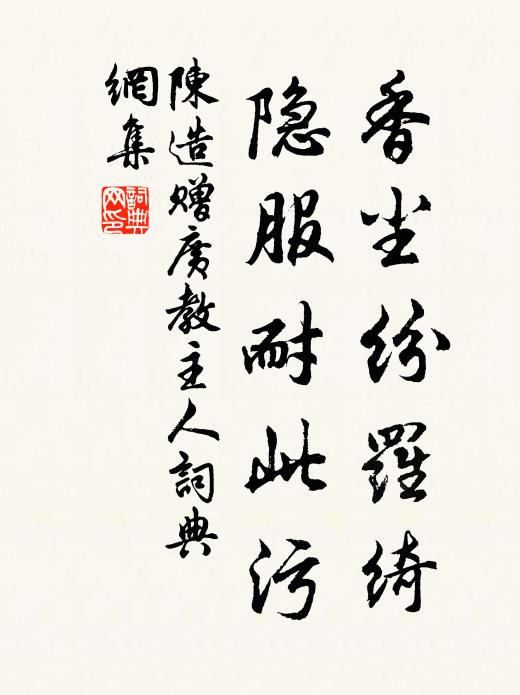 香尘纷羅綺
隐服耐此污
陳造赠广教主人詞典
網集
詞典
网印